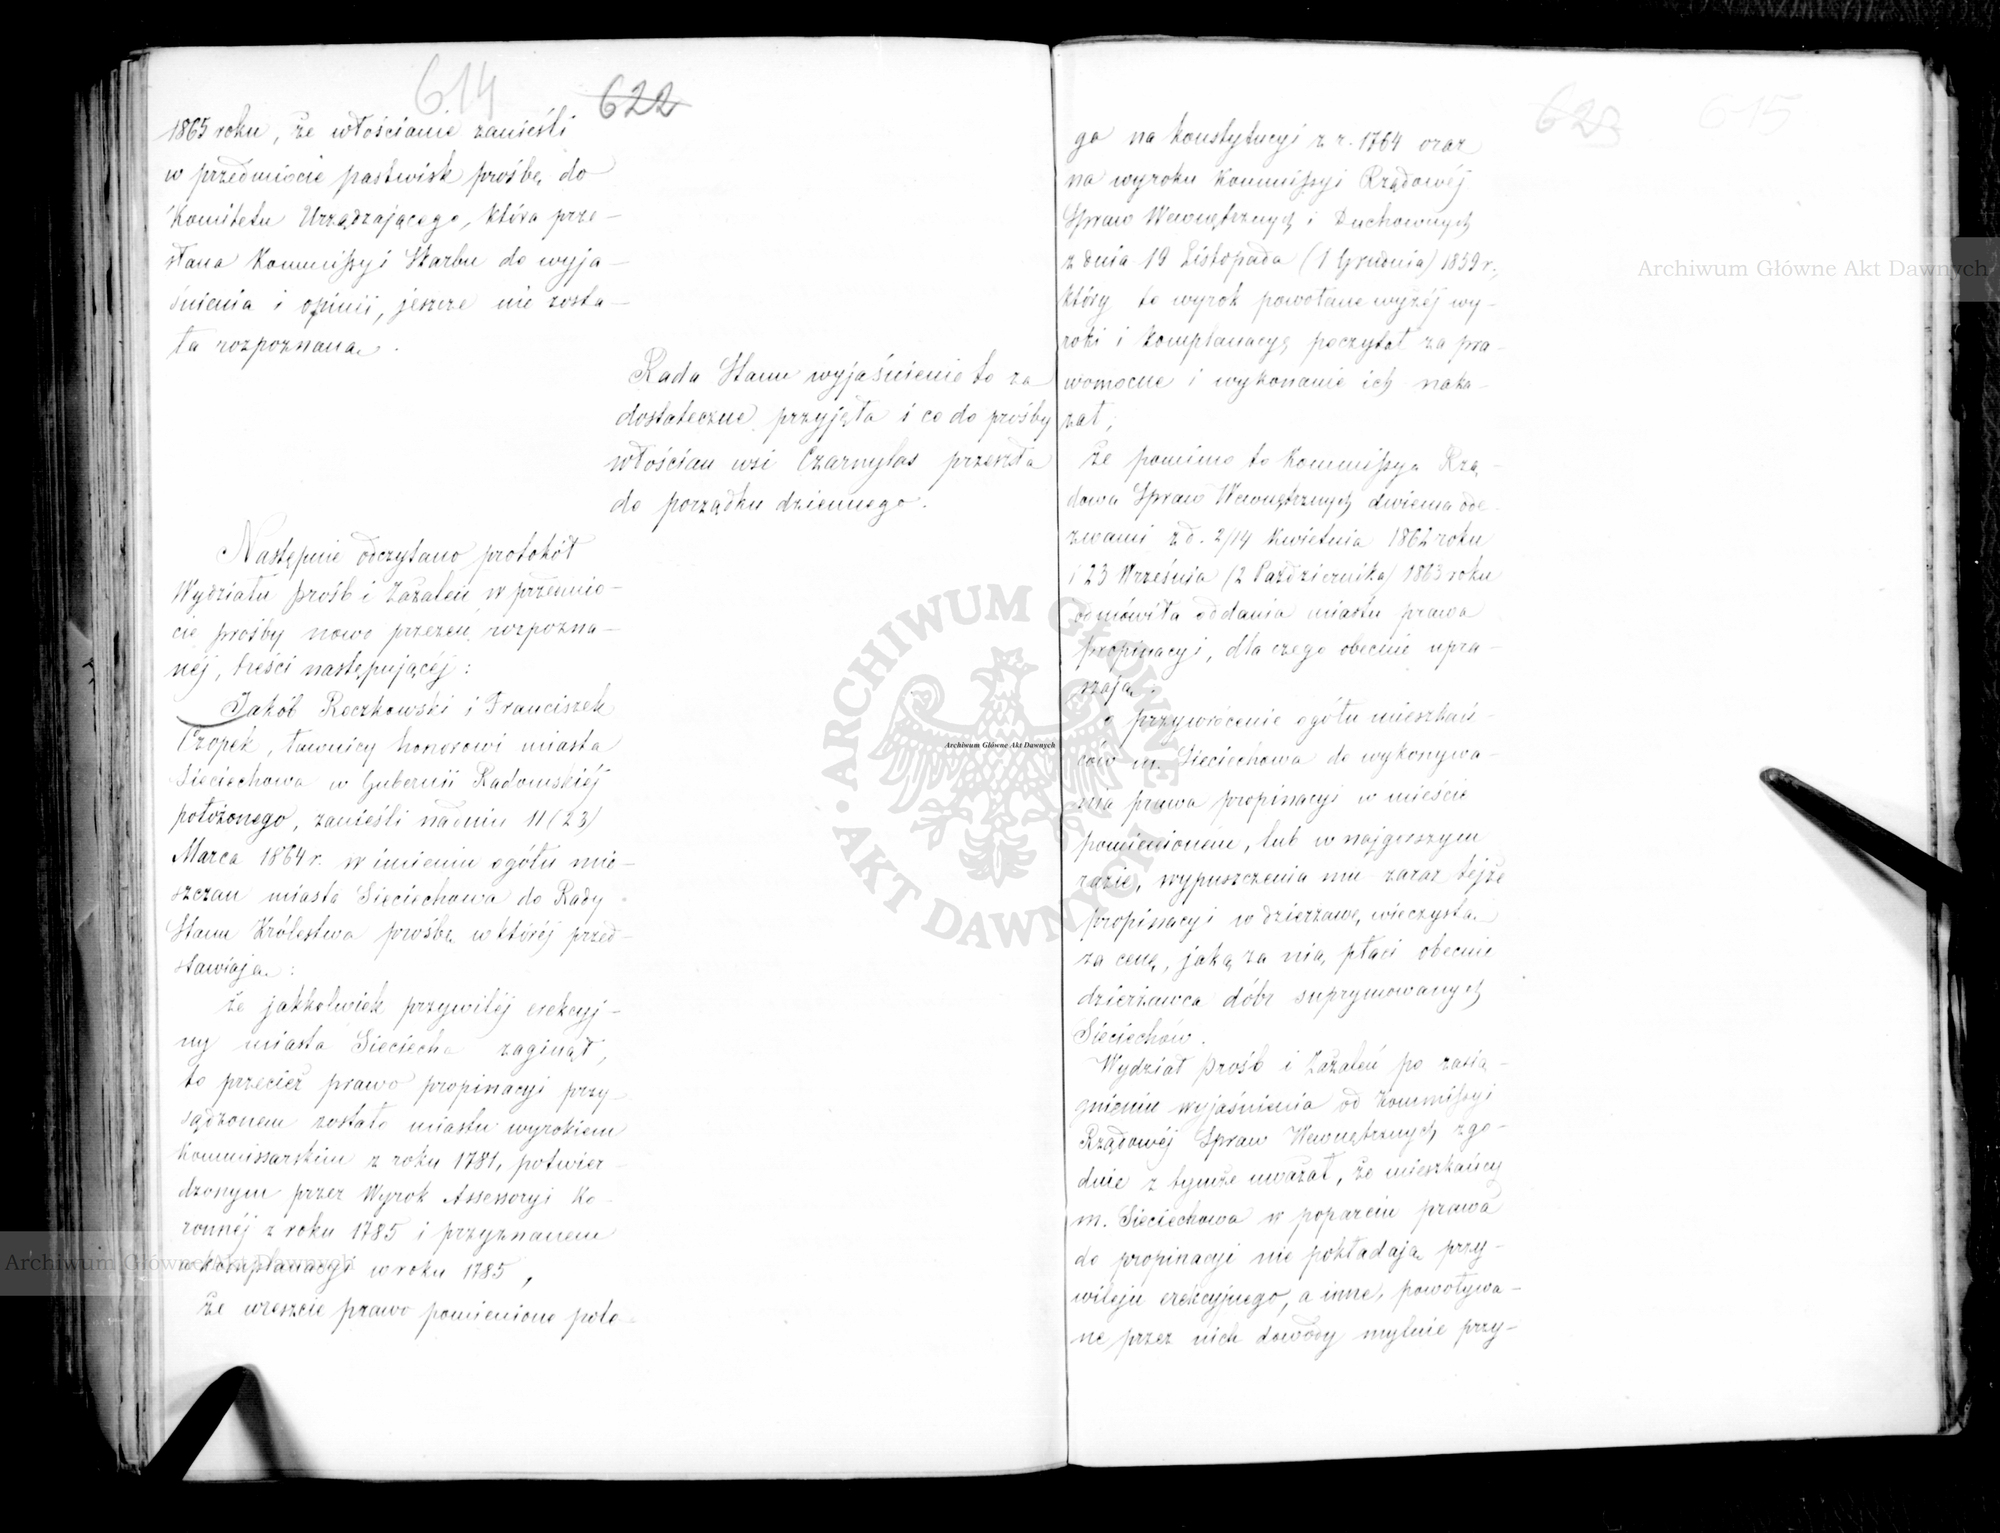 614
622
1865 roku, że włościanie zanieśli
w przedmiocie pastwisk prośbę do
Komitetu Urządzającego, która prze-
słana Kommissyi Skarbu do wyja-
śnienia i opinii, jeszcze nie zosta-
ła rozpoznaną.
Rada Stanu wyjaśnienie to za
dostateczne przyjęła i co do prośby
włościan wsi Czarnylas przeszła
do porządku dziennego.
Następnie odczytano protokół
Wydziału Próśb i Zażaleń w przedmio-
cie prośby nowo przezeń rozpozna-
néj, treści następującéj:
Jakób Reczkowski i Franciszek
Czopek, ławnicy honorowi miasta
Sieciechowa w Gubernii Radomskiéj
położonego, zanieśli na dniu 11 (23)
Marca 1864 r. w imieniu ogółu mie-
szczan miasta Sieciechowa do Rady
Stanu Królestwa prośbę w któréj przed-
stawiają:
że jakkolwiek przywiléj erekcyj-
ny miasta Sieciecha zaginął,
to przecież prawo propinacyi przy-
sądzonem zostało miastu wyrokiem
Kommissarskim z roku 1781, potwier-
dzonym przez Wyrok Assessoryi Ko-
ronnéj z roku 1785 i przyznanem
w komplanacyi w roku 1785,
że wreszcie prawo pomienione pole-
623
615
ga na Konstytucyi z r. 1764 oraz
na wyroku Kommissyi Rządowéj
Spraw Wewnętrznych i Duchownych
z dnia 19 Listopada (1 Grudnia) 1839 r.,
który to wyrok powołane wyżéj wy-
roki i komplanacyę poczytał za pra-
womocne i wykonanie ich naka-
zał;
że pomimo to Kommissya Rzą-
dowa Spraw Wewnętrznych dwiema ode-
zwami z d. 2/14 Kwietnia 1862 roku
i 23 Września (2 Października) 1863 roku
odmówiła oddania miastu prawa
propinacyi, dla czego obecnie upra-
szają
o przywrócenie ogółu mieszkań-
ców m. Sieciechowa do wykonywa-
nia prawa propinacyi w mieście
pomienionem, lub w najgorszym
razie, wypuszczenia mu zaraz tejże
propinacyi w dzierżawę wieczystą
za cenę, jaką za nią płaci obecnie
dzierżawca dóbr suprymowanych
Sieciechów.
Wydział Próśb i Zażaleń po zasią-
gnieniu wyjaśnienia od Kommissyi
Rządowéj Spraw Wewnętrznych zgo-
dnie z tymże uważał, że mieszkańcy
m. Sieciechowa w poparciu prawa
do propinacyi nie pokładają przy-
wileju erekcyjnego, a inne, powoływa-
ne przez nich dowody mylnie przy-
Archiwum Główne Akt Dawnych
Archiwum Główne Akt Dawnych
Archiwum Główne Akt Dawnych
ARCHIWUM GŁÓWNE AKT DAWNYCH